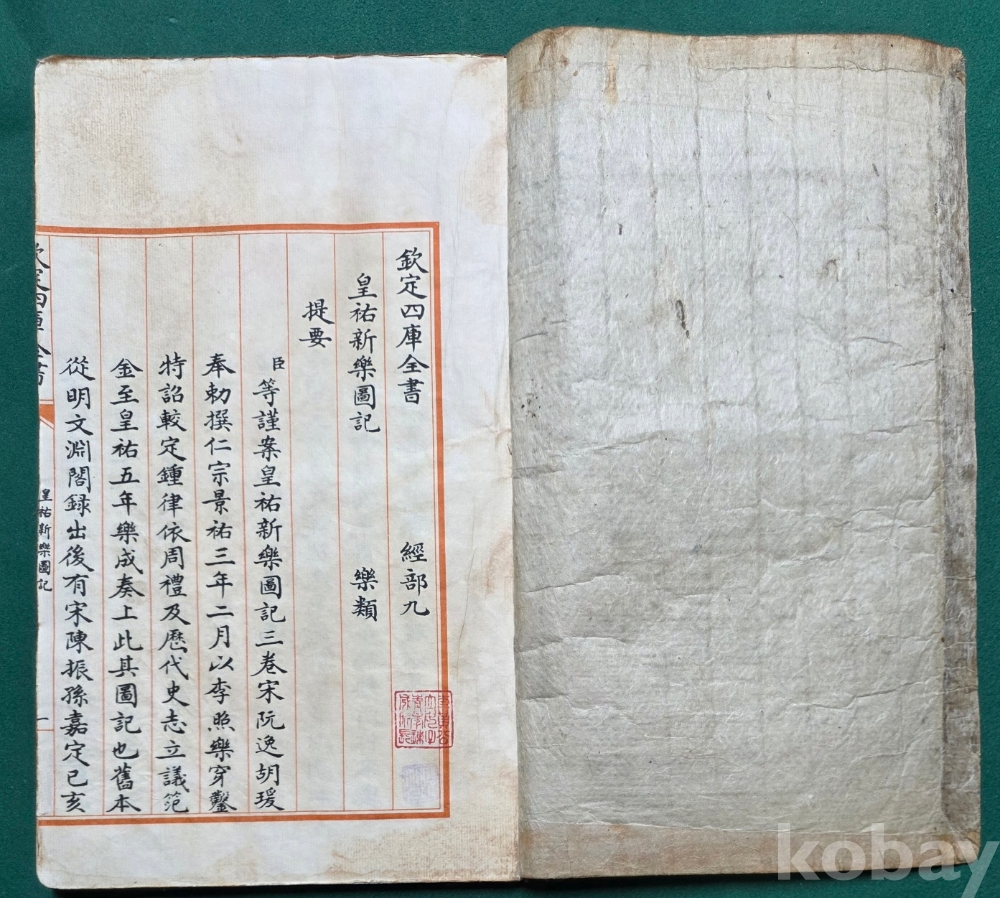 欽定四庫全書 經部九
皇祐新樂圖記 樂類
提要
臣等謹案皇祐新樂圖記三卷宋阮逸胡瑗
奉勅撰仁宗景祐三年二月以李照樂穿鑿
特詔較定鍾律依周禮及歷代史志立議笵
金至皇祐五年樂成奏上此其圖記也舊本
從明文淵閣録出後有宋陳振孫嘉定已亥
欽定四庫全書
皇祐新樂圖記
一
kobay